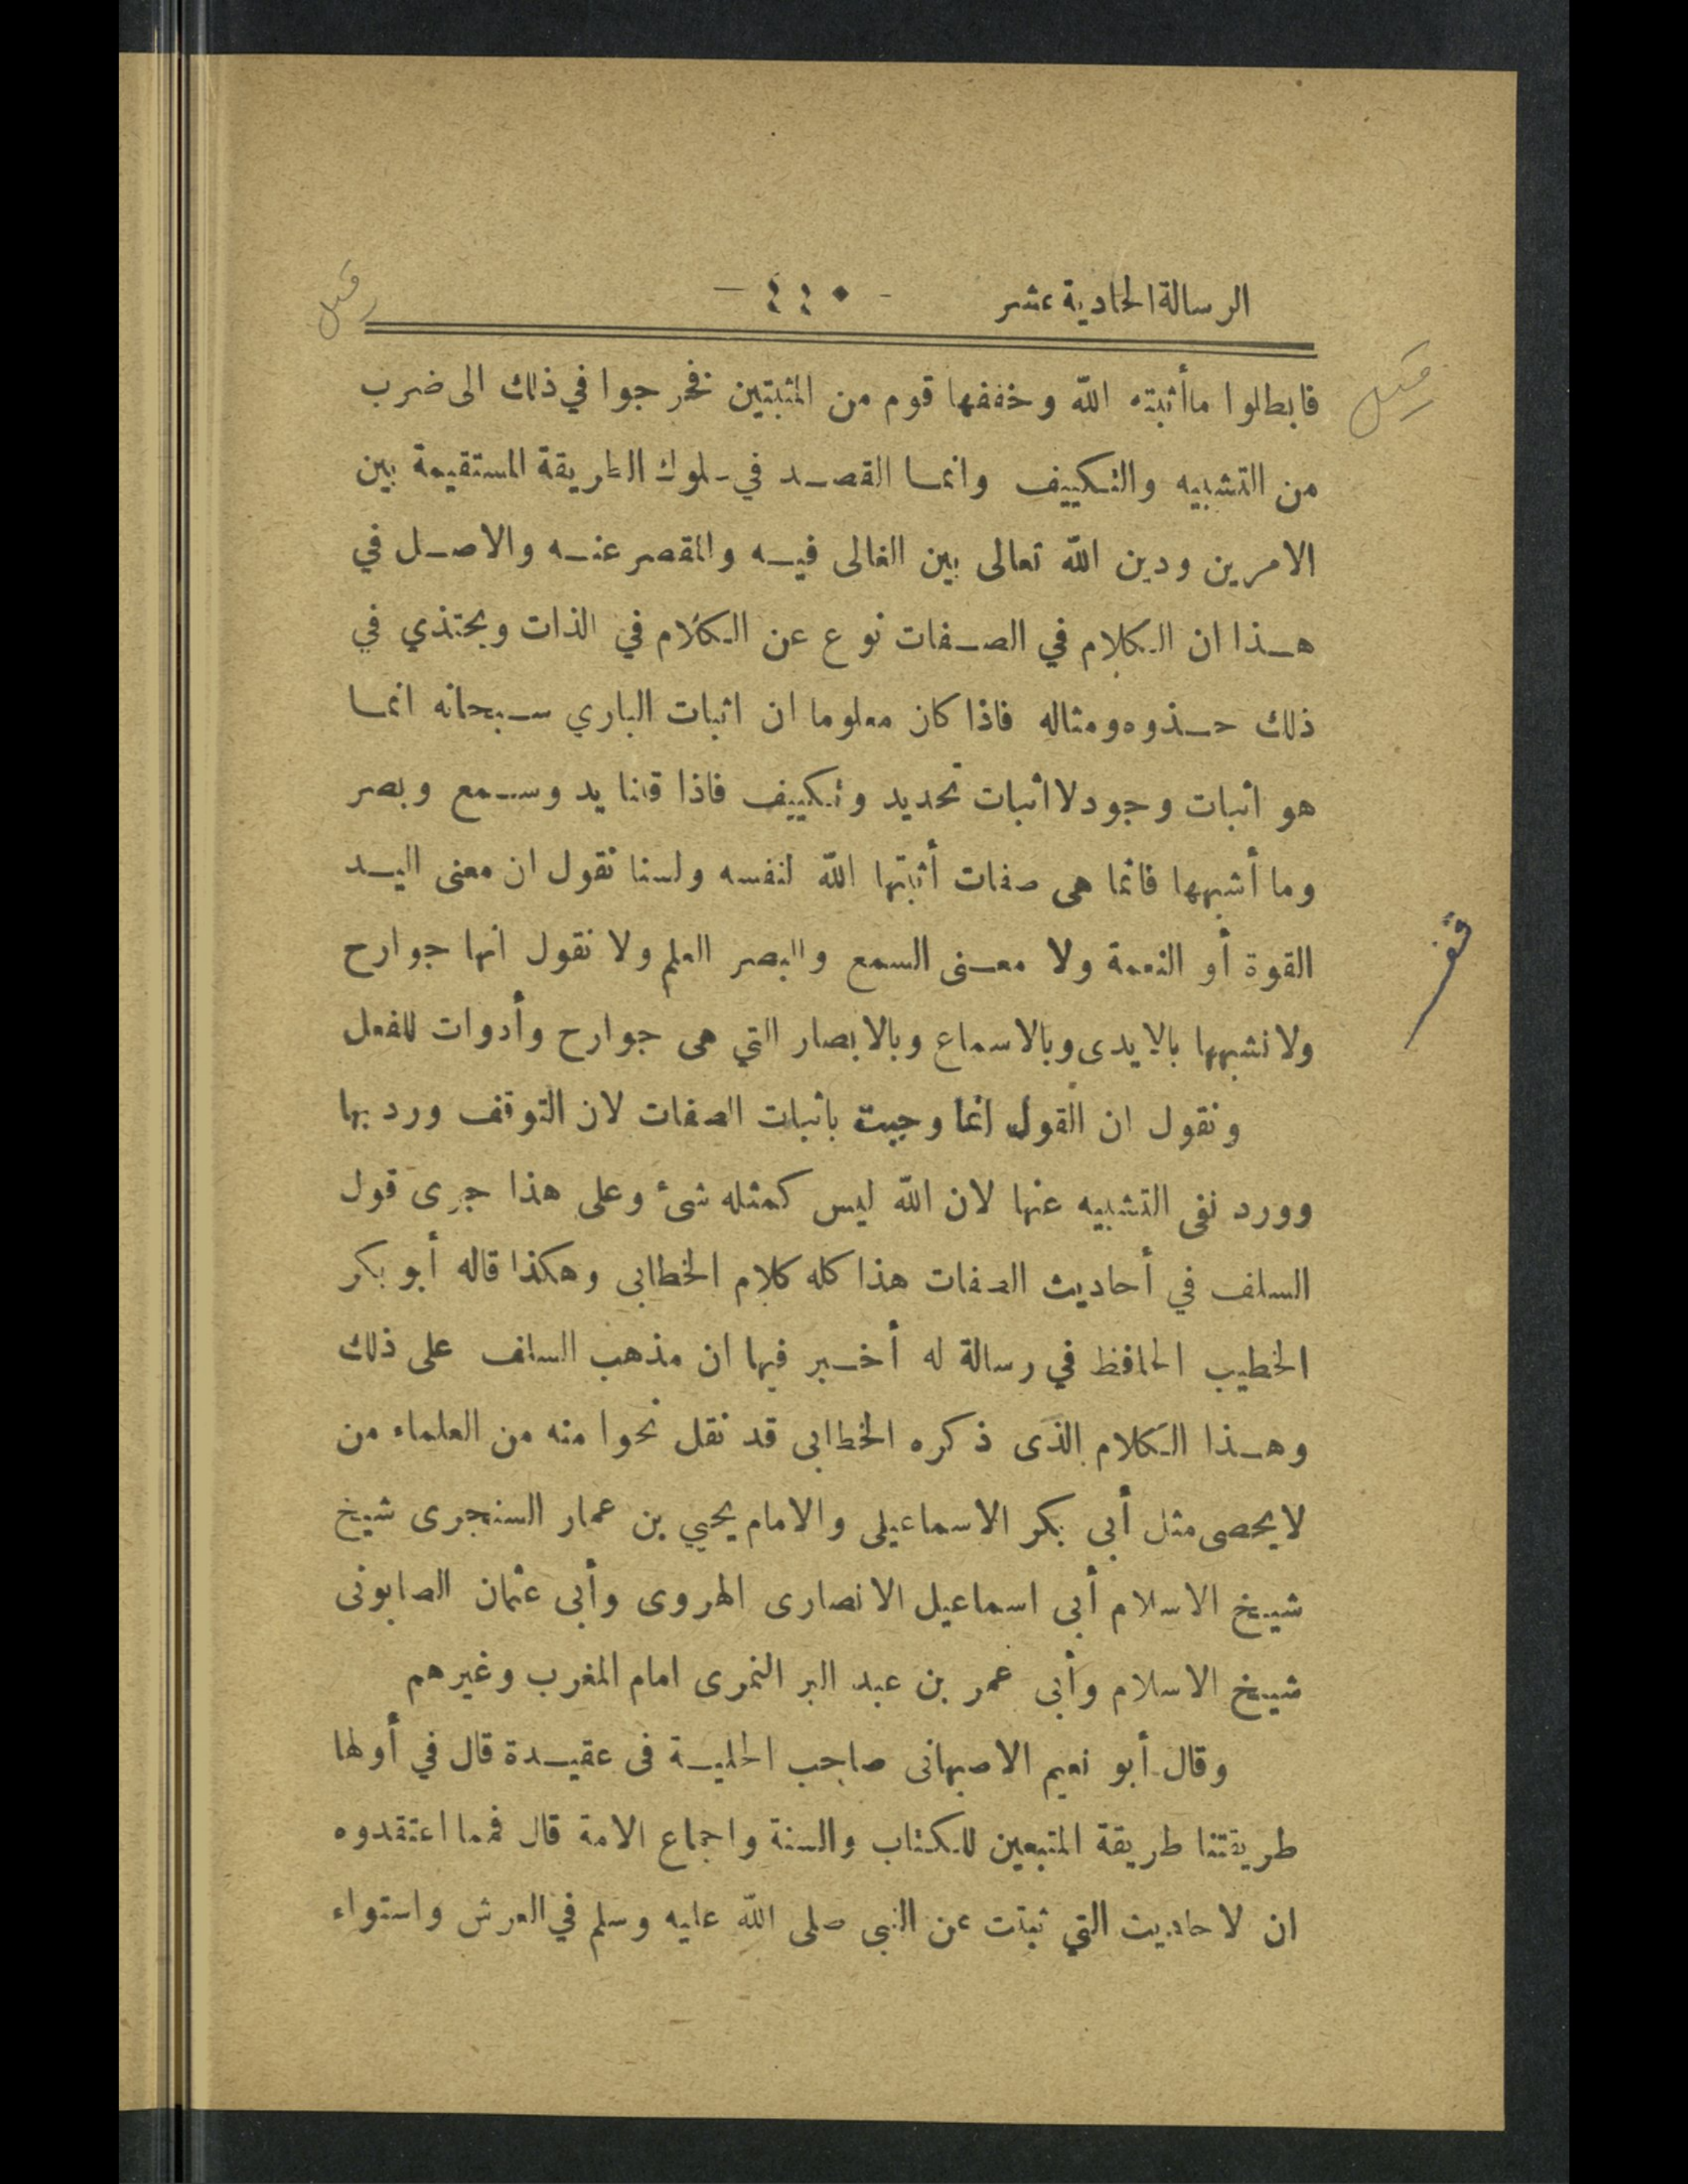 الرسالة الحادية عشر - ٤٤٠ -
فابطلوا ماأثبته الله وخففها قوم من المثبتين فخرجوا في ذلك الى ضرب
من التشبيه والتكييف وانما القصد في سلوك الطريقة المستقيمة بين
الامرين ودين الله تعالى بين الغالى فيه والمقصر عنه والاصل في
هذا ان الكلام في الصفات نوع عن الكلام في الذات ويحتذي في
ذلك حذوه ومثاله فاذا كان معلوما ان اثبات الباري سبحانه انما
هو اثبات وجود لا اثبات تحديد وتكييف فاذا قلنا يد وسمع وبصر
وما أشبهها فانما هى صفات أثبتها الله لنفسه ولسنا نقول ان معنى اليد
القوة أو النعمة ولا معنى السمع والبصر العلم ولا نقول انها جوارح
ولا نشبهها بالايدى وبالاسماع وبالابصار التي هى جوارح وأدوات للفعل
ونقول ان القول انما وجبت باثبات الصفات لان التوقف ورد بها
وورد نفى التشبيه عنها لان الله ليس كمثله شئ وعلى هذا جرى قول
السلف في أحاديث الصفات هذا كله كلام الخطابى وهكذا قاله أبو بكر
الخطيب الحافظ في رسالة له أخبر فيها ان مذهب السلف على ذلك
وهذا الكلام الذى ذكره الخطابى قد نقل نحوا منه من العلماء من
لايحصى مثل أبي بكر الاسماعيلى والامام يحيي بن عمار السنجرى شيخ
شيخ الاسلام أبي اسماعيل الانصارى الهروى وأبى عثمان الصابونى
شيخ الاسلام وأبى عمر بن عبد البر النمرى امام المغرب وغيرهم
وقال أبو نعيم الاصبهانى صاحب الحلية فى عقيدة قال في أولها
طريقتنا طريقة المتبعين للكتاب والسنة واجماع الامة قال فمما اعتقدوه
ان لاحاديث التي ثبتت عن النبى صلى الله عليه وسلم في العرش واستواء